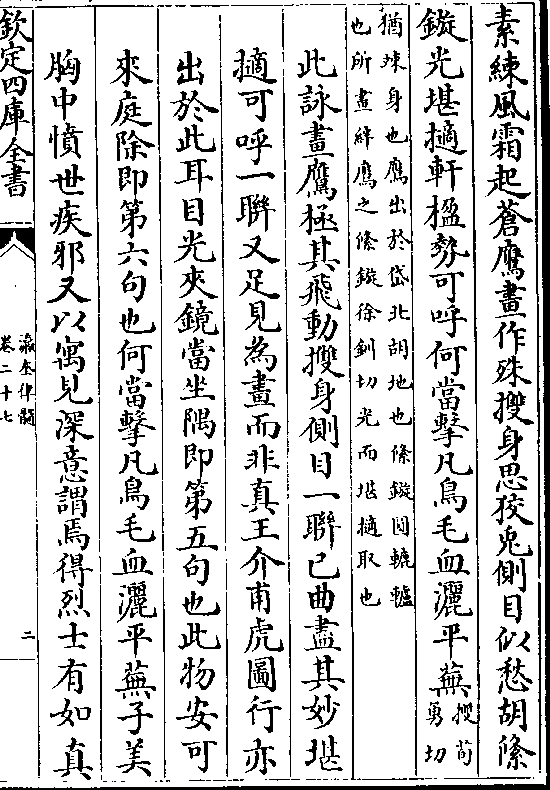 素練風霜起蒼鷹畫作殊㩳身思狡兎側目似愁胡絛
鏇光堪擿軒楹勢可呼何當擊凡鳥毛血灑平蕪
㩳荀
勇切
猶竦身也鷹出於岱北胡地也絛鏇圓轆轤
也所畫絆鷹之絛鏇徐釧切光而堪擿取也
此詠畫鷹極其飛動㩳身側目一聯已曲盡其妙堪
擿可呼一聯又足見為畫而非真王介甫虎圖行亦
出於此耳目光夾鏡當坐隅即第五句也此物安可
來庭除即第六句也何當擊凡鳥毛血灑平蕪子美
胸中憤世疾邪又以寓見深意謂焉得烈士有如真
欽定四庫全書
瀛奎律髓
卷二十七
二